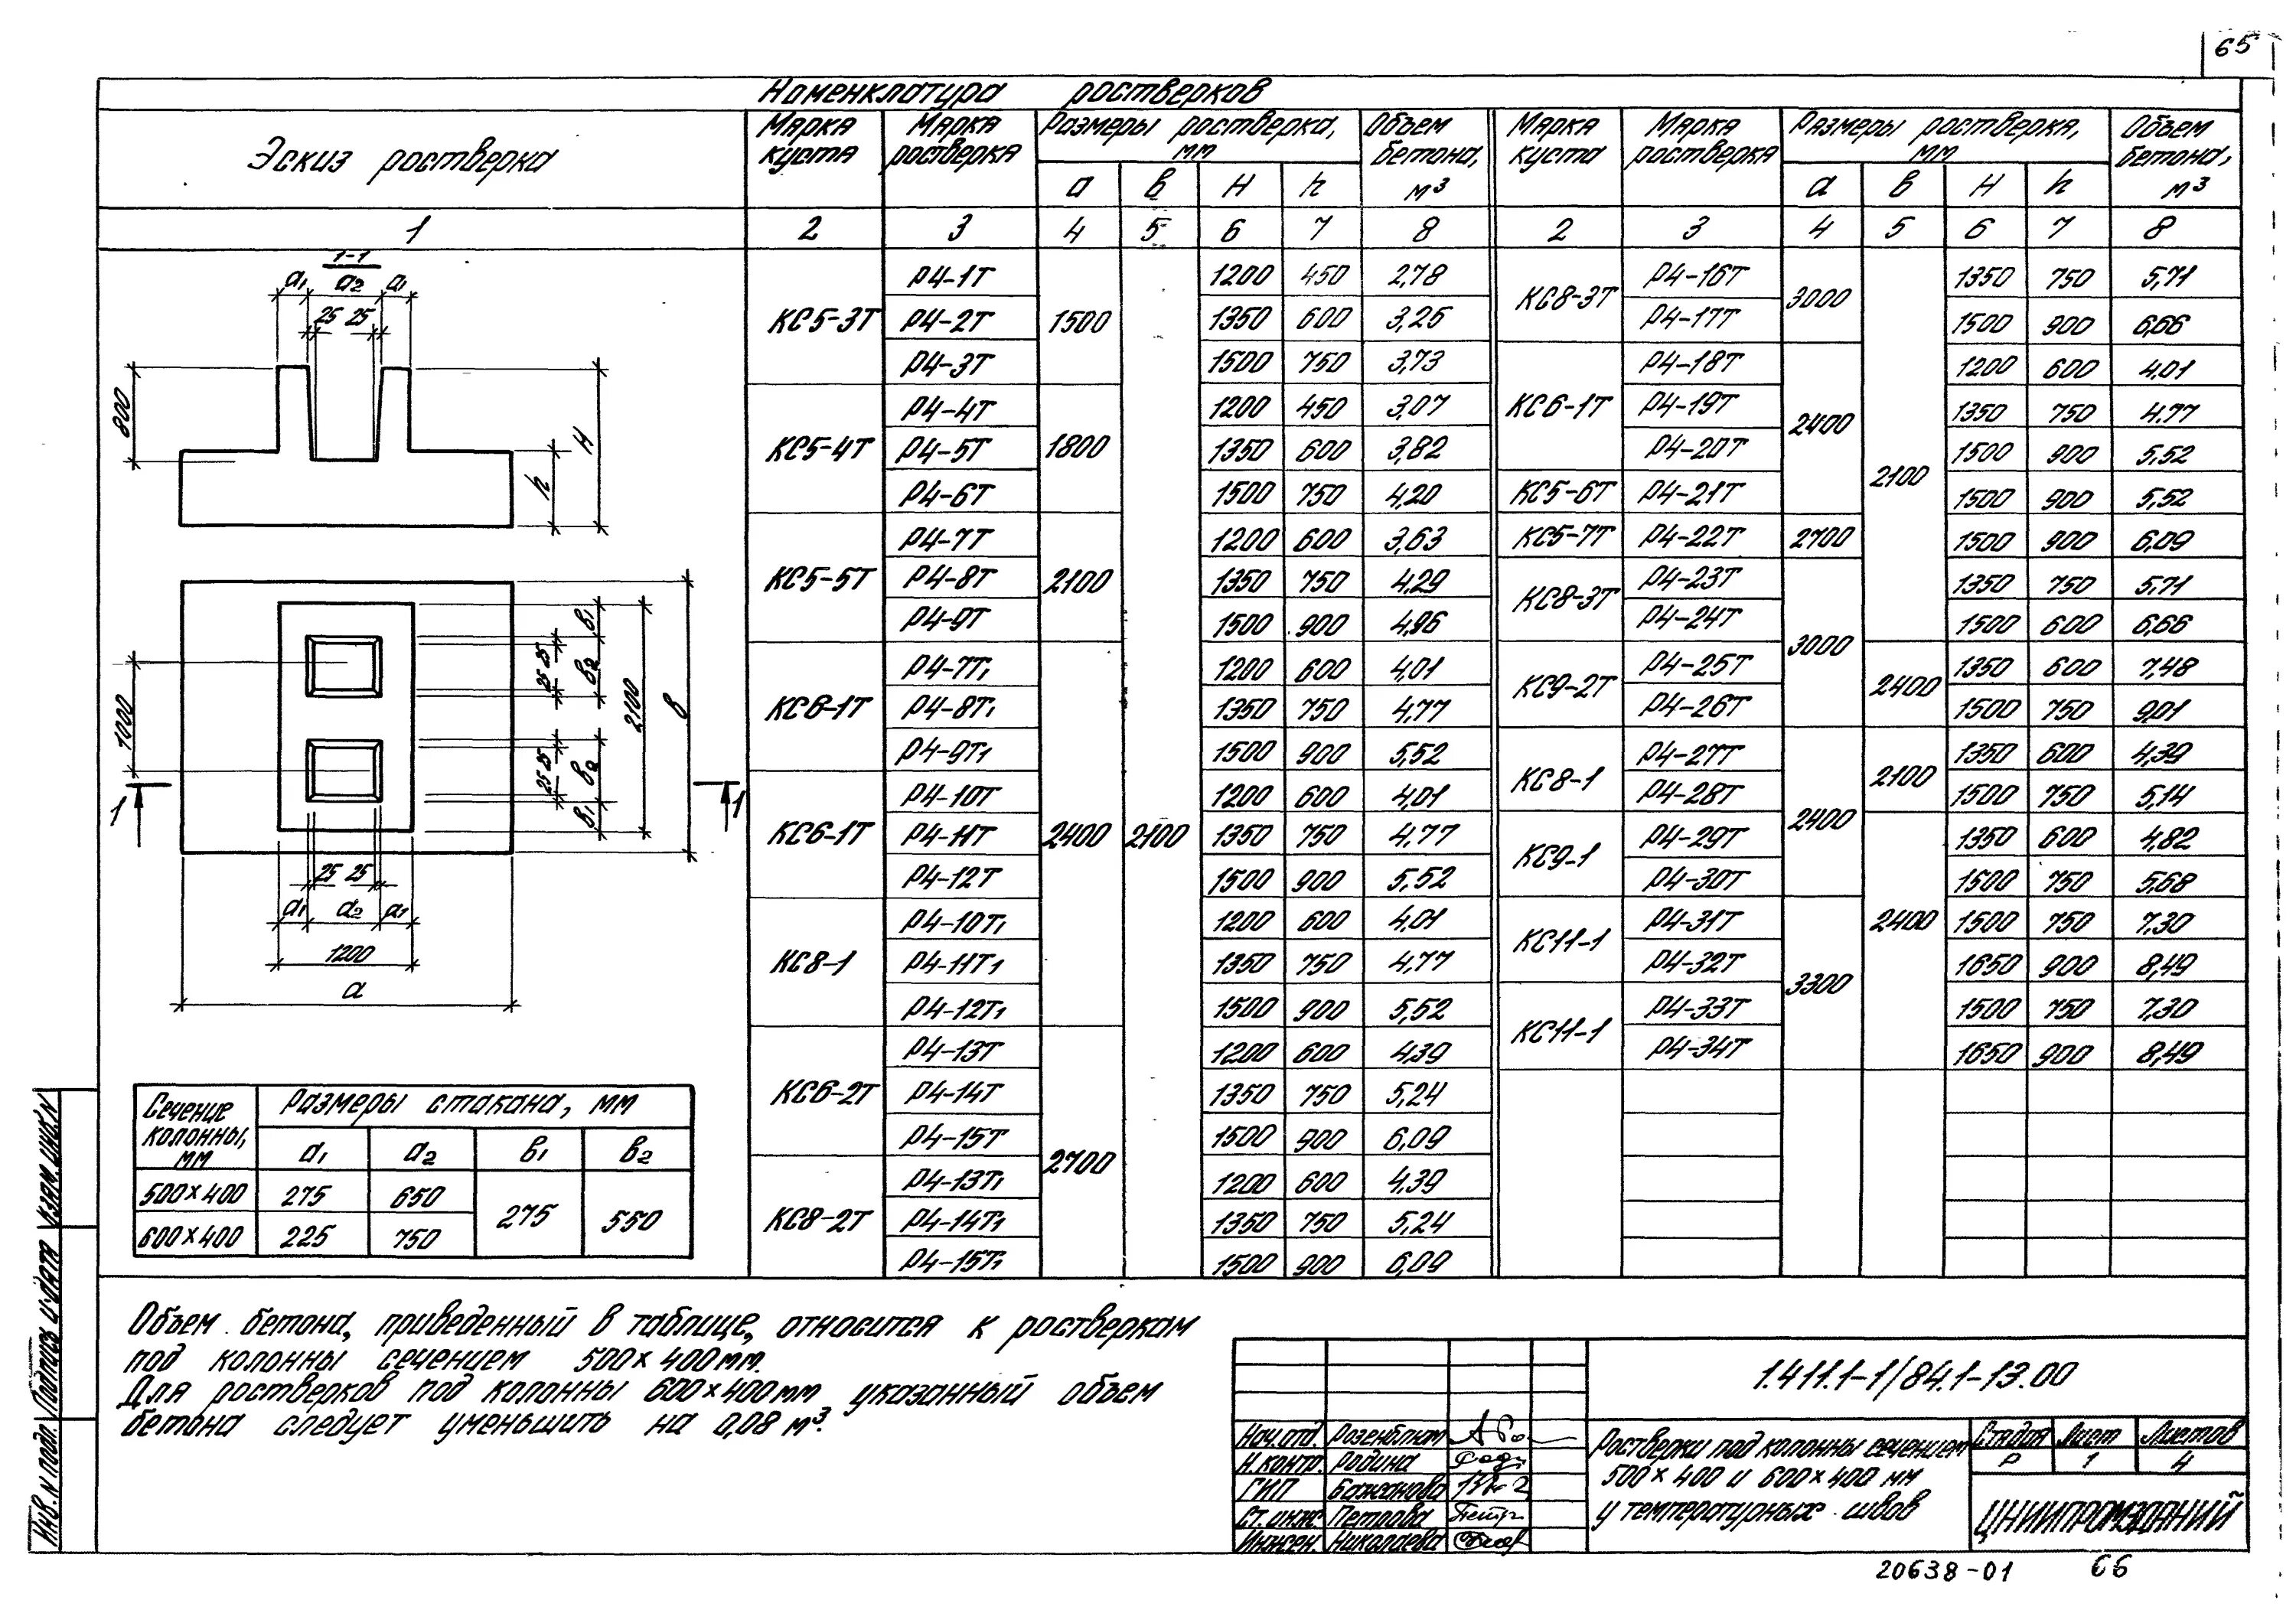 65
Номенклатура ростверков
Эскиз ростверка
Марка куста
Марка ростверка
Размеры ростверка, мм
Объем бетона, м³
Марка куста
Марка ростверка
Размеры ростверка, мм
Объем бетона, м³
а в H h а в H h
1 2 3 4 5 6 7 8 2 3 4 5 6 7 8
КС5-3Т Р4-1Т 1500 2100 1200 450 2,78
Р4-2Т 1350 600 3,25
Р4-3Т 1500 750 3,73
КС5-4Т Р4-4Т 1800 1200 450 3,07
Р4-5Т 1350 600 3,82
Р4-6Т 1500 750 4,20
КС5-5Т Р4-7Т 2100 1200 600 3,63
Р4-8Т 1350 750 4,29
Р4-9Т 1500 900 4,96
КС6-1Т Р4-7Т1 2400 1200 600 4,01
Р4-8Т1 1350 750 4,77
Р4-9Т1 1500 900 5,52
КС6-1Т Р4-10Т 1200 600 4,01
Р4-11Т 1350 750 4,77
Р4-12Т 1500 900 5,52
КС8-1 Р4-10Т1 1200 600 4,01
Р4-11Т1 1350 750 4,77
Р4-12Т1 1500 900 5,52
КС6-2Т Р4-13Т 2700 1200 600 4,39
Р4-14Т 1350 750 5,24
Р4-15Т 1500 900 6,09
КС8-2Т Р4-13Т1 1200 600 4,39
Р4-14Т1 1350 750 5,24
Р4-15Т1 1500 900 6,09
КС8-3Т Р4-16Т 3000 2100 1350 750 5,71
Р4-17Т 1500 900 6,66
КС6-1Т Р4-18Т 2400 1200 600 4,01
Р4-19Т 1350 750 4,77
Р4-20Т 1500 900 5,52
КС5-6Т Р4-21Т 1500 900 5,52
КС5-7Т Р4-22Т 2700 1500 900 6,09
КС8-3Т Р4-23Т 3000 1350 750 5,71
Р4-24Т 1500 600 6,66
КС9-2Т Р4-25Т 2400 1350 600 7,48
Р4-26Т 1500 750 9,01
КС8-1 Р4-27Т 2400 2100 1350 600 4,39
Р4-28Т 1500 750 5,14
КС9-1 Р4-29Т 2400 1350 600 4,82
Р4-30Т 1500 750 5,68
КС11-1 Р4-31Т 3300 1500 750 7,30
Р4-32Т 1650 900 8,49
КС11-1 Р4-33Т 1500 750 7,30
Р4-34Т 1650 900 8,49
1-1
а1 а2 а1
25 25
800
h
H
1000
25 25
25 25
в1
в2
в2
в1
2100
в
1 1
25 25
а1 а2 а1
1200
а
Сечение колонны, мм
Размеры стакана, мм
а1 а2 в1 в2
500×400 275 650 275 550
600×400 225 750
Объем бетона, приведенный в таблице, относится к ростверкам
под колонны сечением 500×400мм.
Для ростверков под колонны 600×400мм указанный объем
бетона следует уменьшить на 0,08 м³.
1.411.1-1/84.1-13.00
Нач.отд. Розенблюм
Н.контр. Родина
ГИП Бажанова
Ст.инж. Петрова
Инжен. Николаева
Ростверки под колонны сечением
500×400 и 600×400 мм
у температурных швов
Стадия Лист Листов
Р 1 4
ЦНИИПРОМЗДАНИЙ
20638-01 66
Инв.N подл. Подпись и дата Взам.инв.N